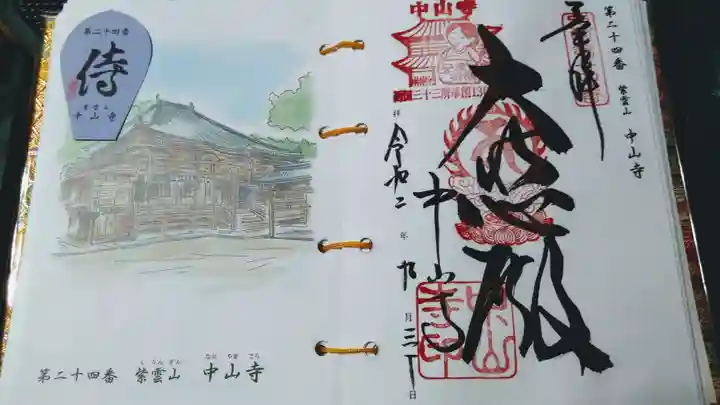 第二十四番
侍
中山寺
し うん ざん
なか やま でら
第二十四番 紫雲山 中山寺
第二十四番 紫雲山 中山寺
奉拝
中山寺
大悲殿
中山寺
令和二年
月三十日